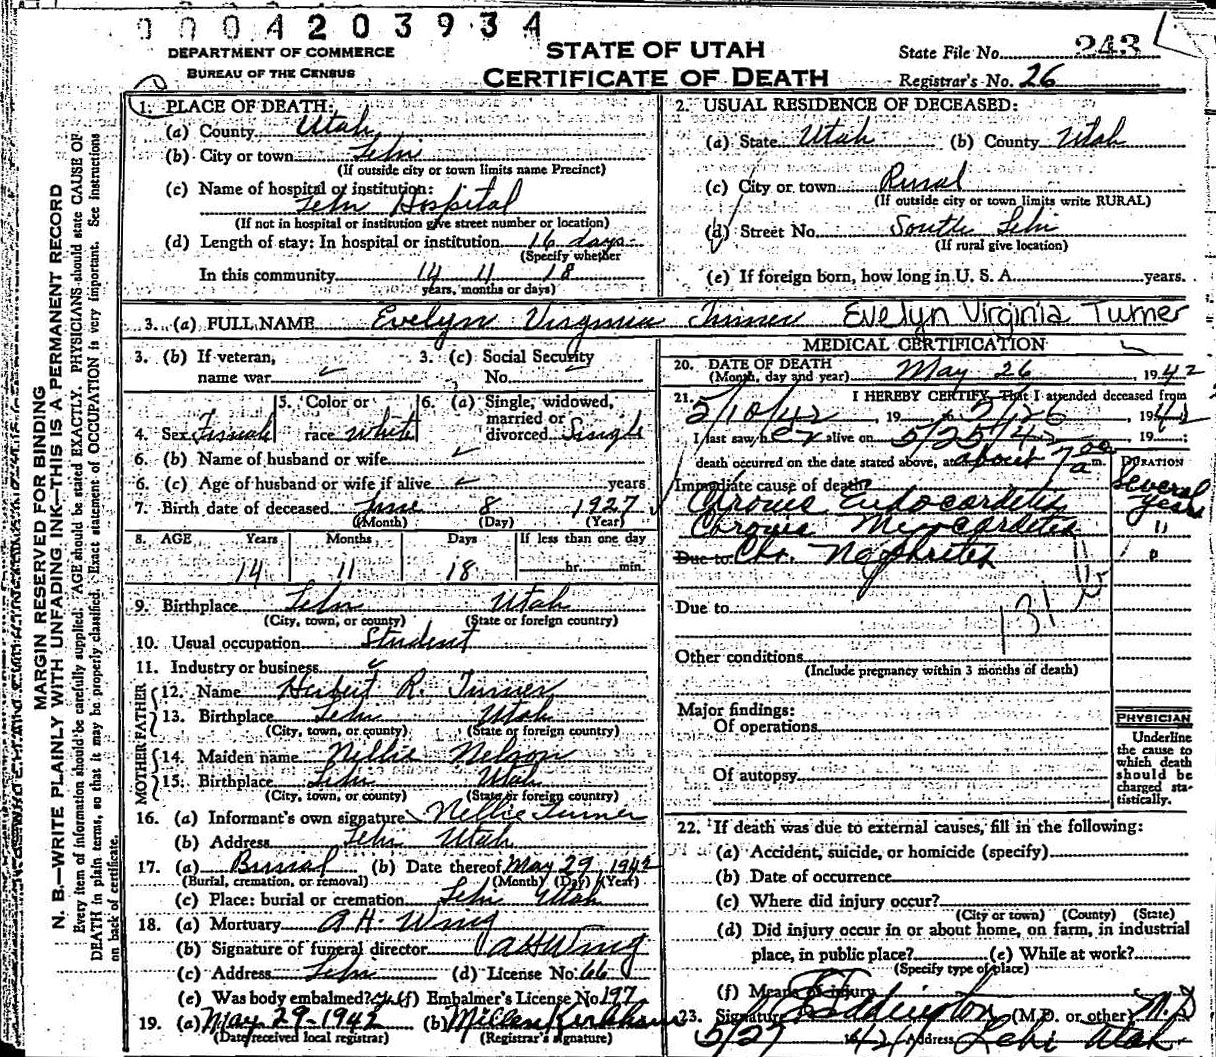 0004203934
DEPARTMENT OF COMMERCE
BUREAU OF THE CENSUS
STATE OF UTAH
CERTIFICATE OF DEATH
State File No. 243
Registrar's No. 26
MARGIN RESERVED FOR BINDING
N. B.—WRITE PLAINLY WITH UNFADING INK—THIS IS A PERMANENT RECORD
Every item of information should be carefully supplied. AGE should be stated EXACTLY. PHYSICIANS should state CAUSE OF
DEATH in plain terms, so that it may be properly classified. Exact statement of OCCUPATION is very important. See instructions
on back of certificate.
1. PLACE OF DEATH:
(a) County Utah
(b) City or town Lehi
(If outside city or town limits name Precinct)
(c) Name of hospital or institution:
Lehi Hospital
(If not in hospital or institution give street number or location)
(d) Length of stay: In hospital or institution 16 days
(Specify whether
In this community 14 11 18
years, months or days)
2. USUAL RESIDENCE OF DECEASED:
(a) State Utah (b) County Utah
(c) City or town Rural
(If outside city or town limits write RURAL)
(d) Street No. South Lehi
(If rural give location)
(e) If foreign born, how long in U. S. A. years.
3. (a) FULL NAME Evelyn Virginia Turner Evelyn Virginia Turner
3. (b) If veteran,
name war
3. (c) Social Security
No.
4. Sex Female
5. Color or
race White
6. (a) Single, widowed,
married or
divorced Single
6. (b) Name of husband or wife
6. (c) Age of husband or wife if alive years
7. Birth date of deceased June 8 1927
(Month) (Day) (Year)
8. AGE Years Months Days If less than one day
14 11 18 hr. min.
9. Birthplace Lehi Utah
(City, town, or county) (State or foreign country)
10. Usual occupation Student
11. Industry or business
FATHER
12. Name Herbert R. Turner
13. Birthplace Lehi Utah
(City, town, or county) (State or foreign country)
MOTHER
14. Maiden name Nellie Nelson
15. Birthplace Lehi Utah
(City, town, or county) (State or foreign country)
16. (a) Informant's own signature Nellie Turner
(b) Address Lehi Utah
17. (a) Burial (b) Date thereof May 29 1942
(Burial, cremation, or removal) (Month) (Day) (Year)
(c) Place: burial or cremation Lehi Utah
18. (a) Mortuary A. H. Wing
(b) Signature of funeral director A H Wing
(c) Address Lehi (d) License No. 66
(e) Was body embalmed? Yes (f) Embalmer's License No. 197
19. (a) May 29-1942 (b) Millen Kirkham
(Date received local registrar) (Registrar's signature)
MEDICAL CERTIFICATION
20. DATE OF DEATH
(Month, day and year) May 26, 1942
21. I HEREBY CERTIFY, That I attended deceased from
5/10/42, 19 to 5/26 1942
I last saw her alive on 5/25/42 19 ;
death occurred on the date stated above, at about 7 00 a m.
DURATION
Immediate cause of death
Chronic Endocarditis Several years
Chronic Myocarditis "
Due to Chr. Nephritis "
131
Due to
Other conditions
(Include pregnancy within 3 months of death)
Major findings:
Of operations
Of autopsy
PHYSICIAN
Underline
the cause to
which death
should be
charged sta-
tistically.
22. If death was due to external causes, fill in the following:
(a) Accident, suicide, or homicide (specify)
(b) Date of occurrence
(c) Where did injury occur?
(City or town) (County) (State)
(d) Did injury occur in or about home, on farm, in industrial
place, in public place? (e) While at work?
(Specify type of place)
(f) Means of injury
23. Signature Eddington (M.D. or other) M.D
5/27 1942 Address Lehi Utah